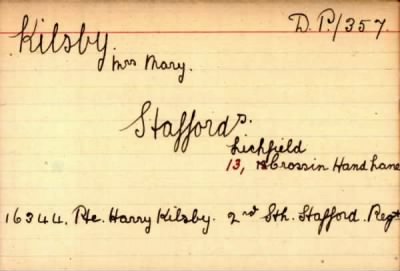 Kilsby. D.P./357.
Mrs Mary.
Staffords.
Lichfield
13, Crossin Hand Lane
16344. Pte. Harry Kilsby. 2nd Sth. Stafford. Regt